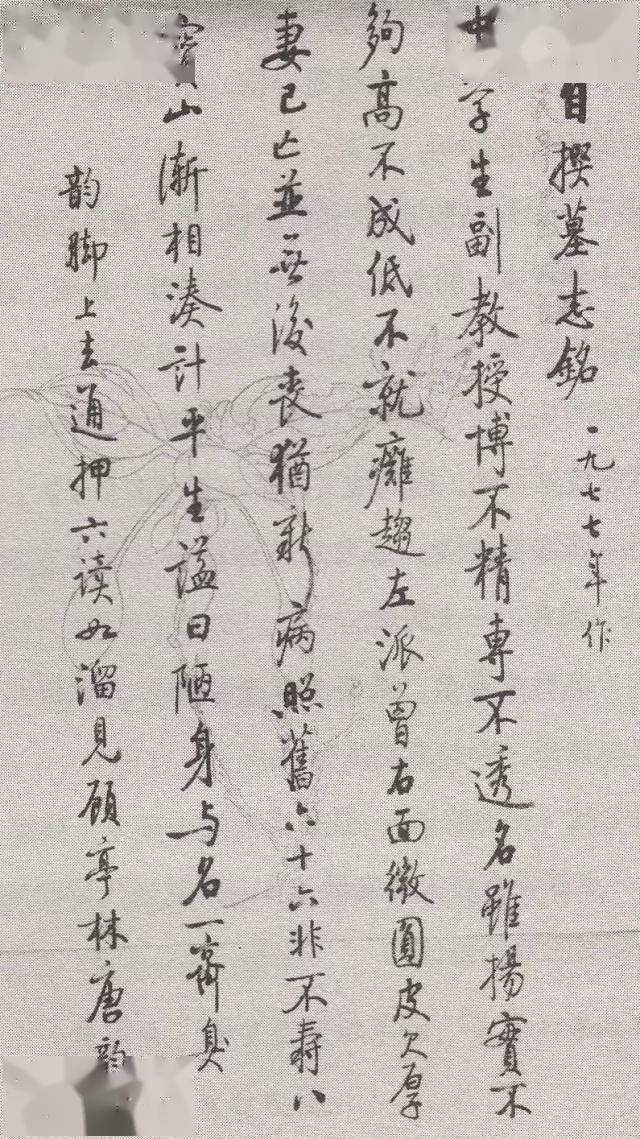 自撰墓志銘 一九七七年作
中学生副教授博不精專不透名雖揚實不
夠高不成低不就癱趨左派曾右面微圓皮欠厚
妻已亡並無後喪猶新病照舊六十六非不壽八
寶山漸相湊計平生謚曰陋身与名一齊臭
韵脚上去通押六读如溜見顾亭林唐韵